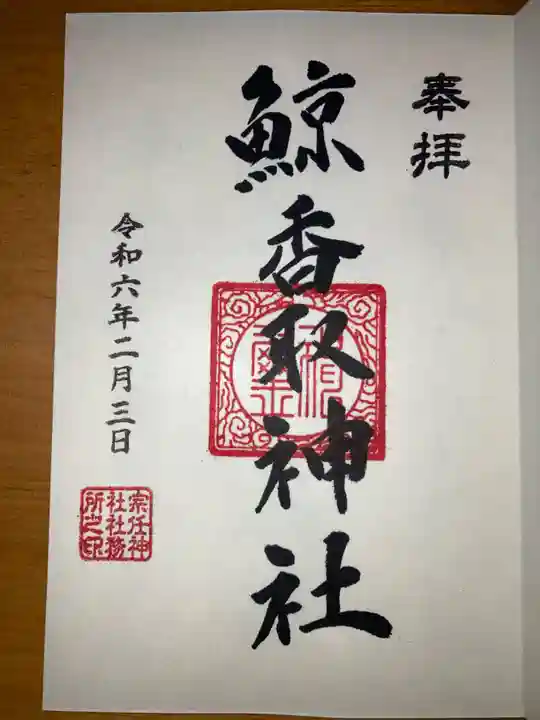 奉拝
鯨香取神社
令和六年二月三日
宗任神
社社務
所之印